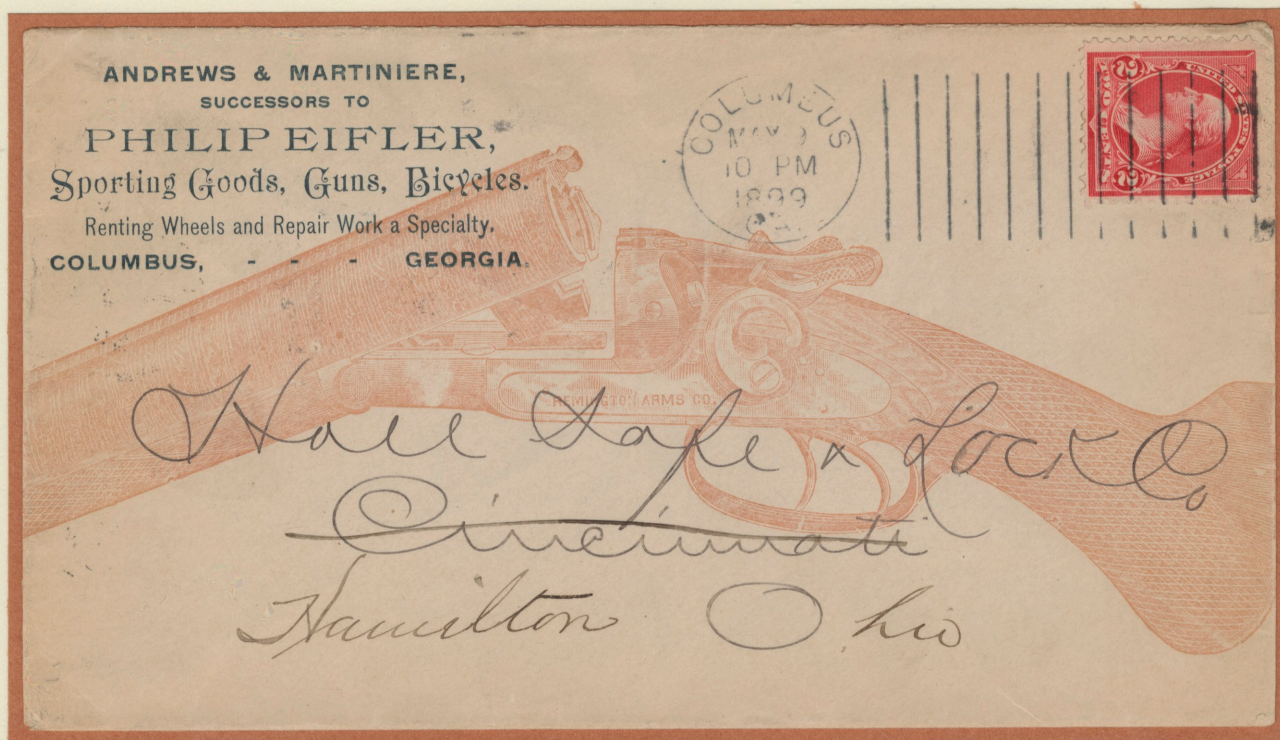 ANDREWS & MARTINIERE,
SUCCESSORS TO
PHILIP EIFLER,
Sporting Goods, Guns, Bicycles.
Renting Wheels and Repair Work a Specialty,
COLUMBUS, - - - GEORGIA.
COLUMBUS
MAY 9
10 PM
1899
GA.
UNITED STATES POSTAGE
2 TWO CENTS 2
REMINGTON ARMS CO.
Hall Safe & Lock Co
Cincinnati
Hamilton Ohio